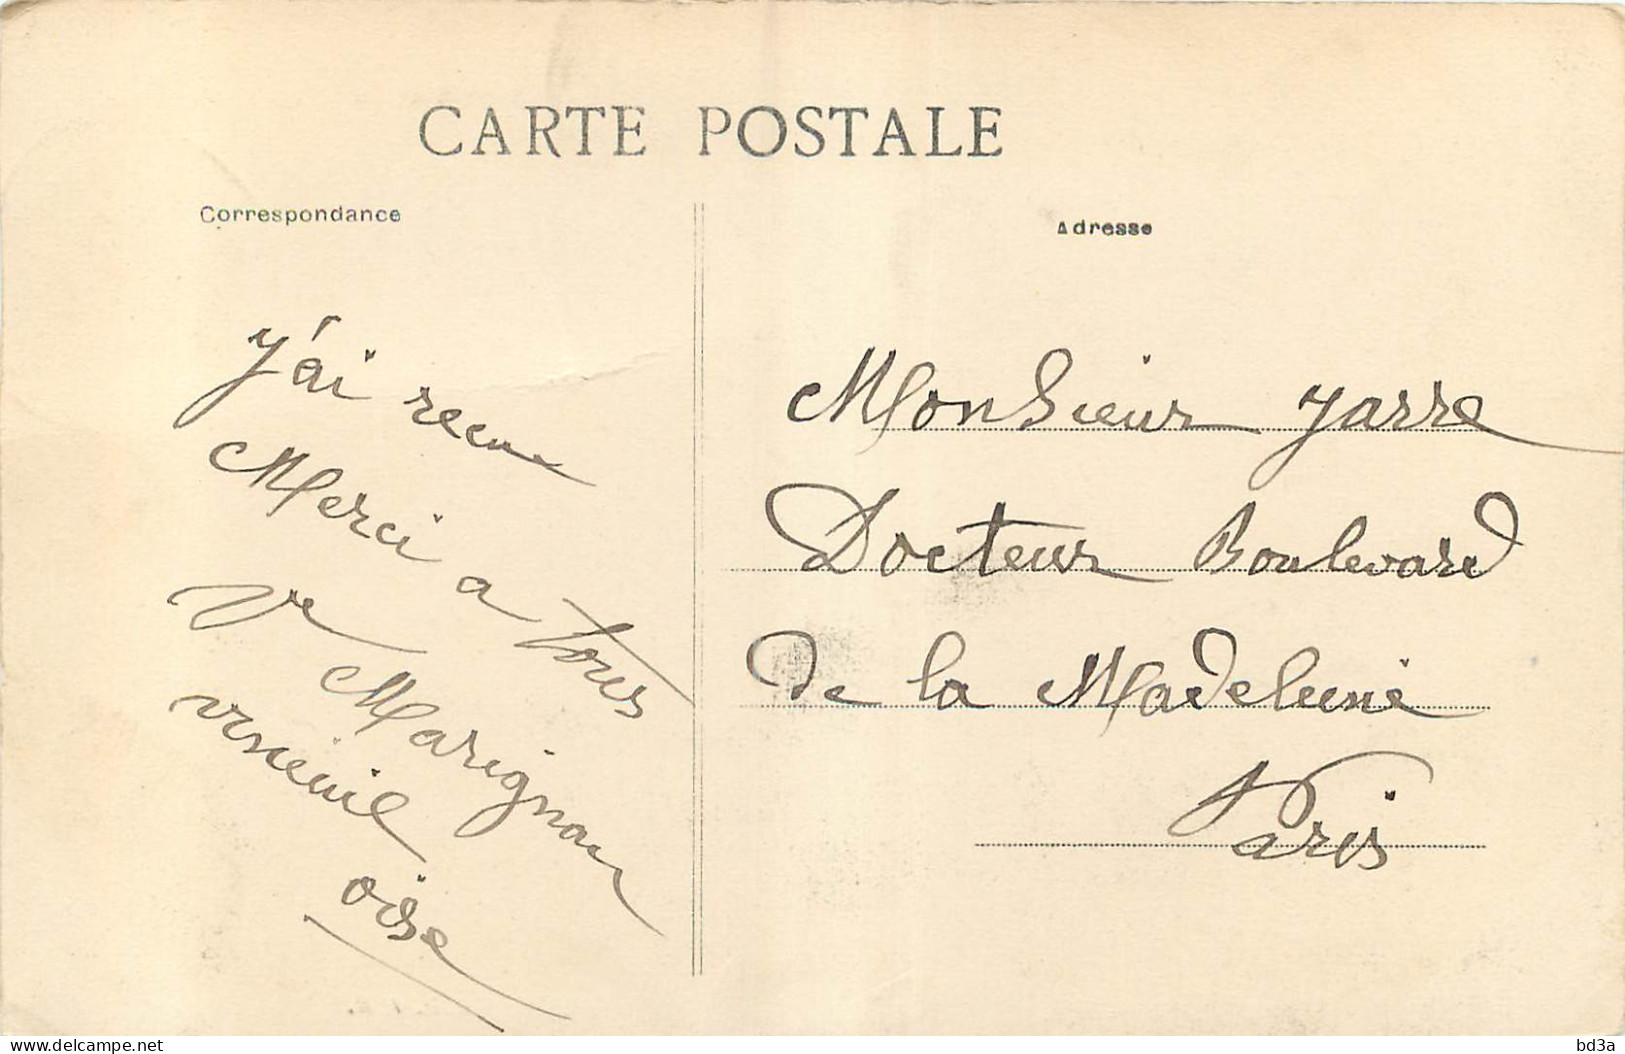 CARTE POSTALE
Correspondance
Adresse
j'ai recu
Merci a tous
Ve Marignan
verneuil
oise
Monsieur Jarre
Docteur Boulevard
de la Madeleine
Paris
delcampe.net
bd3a